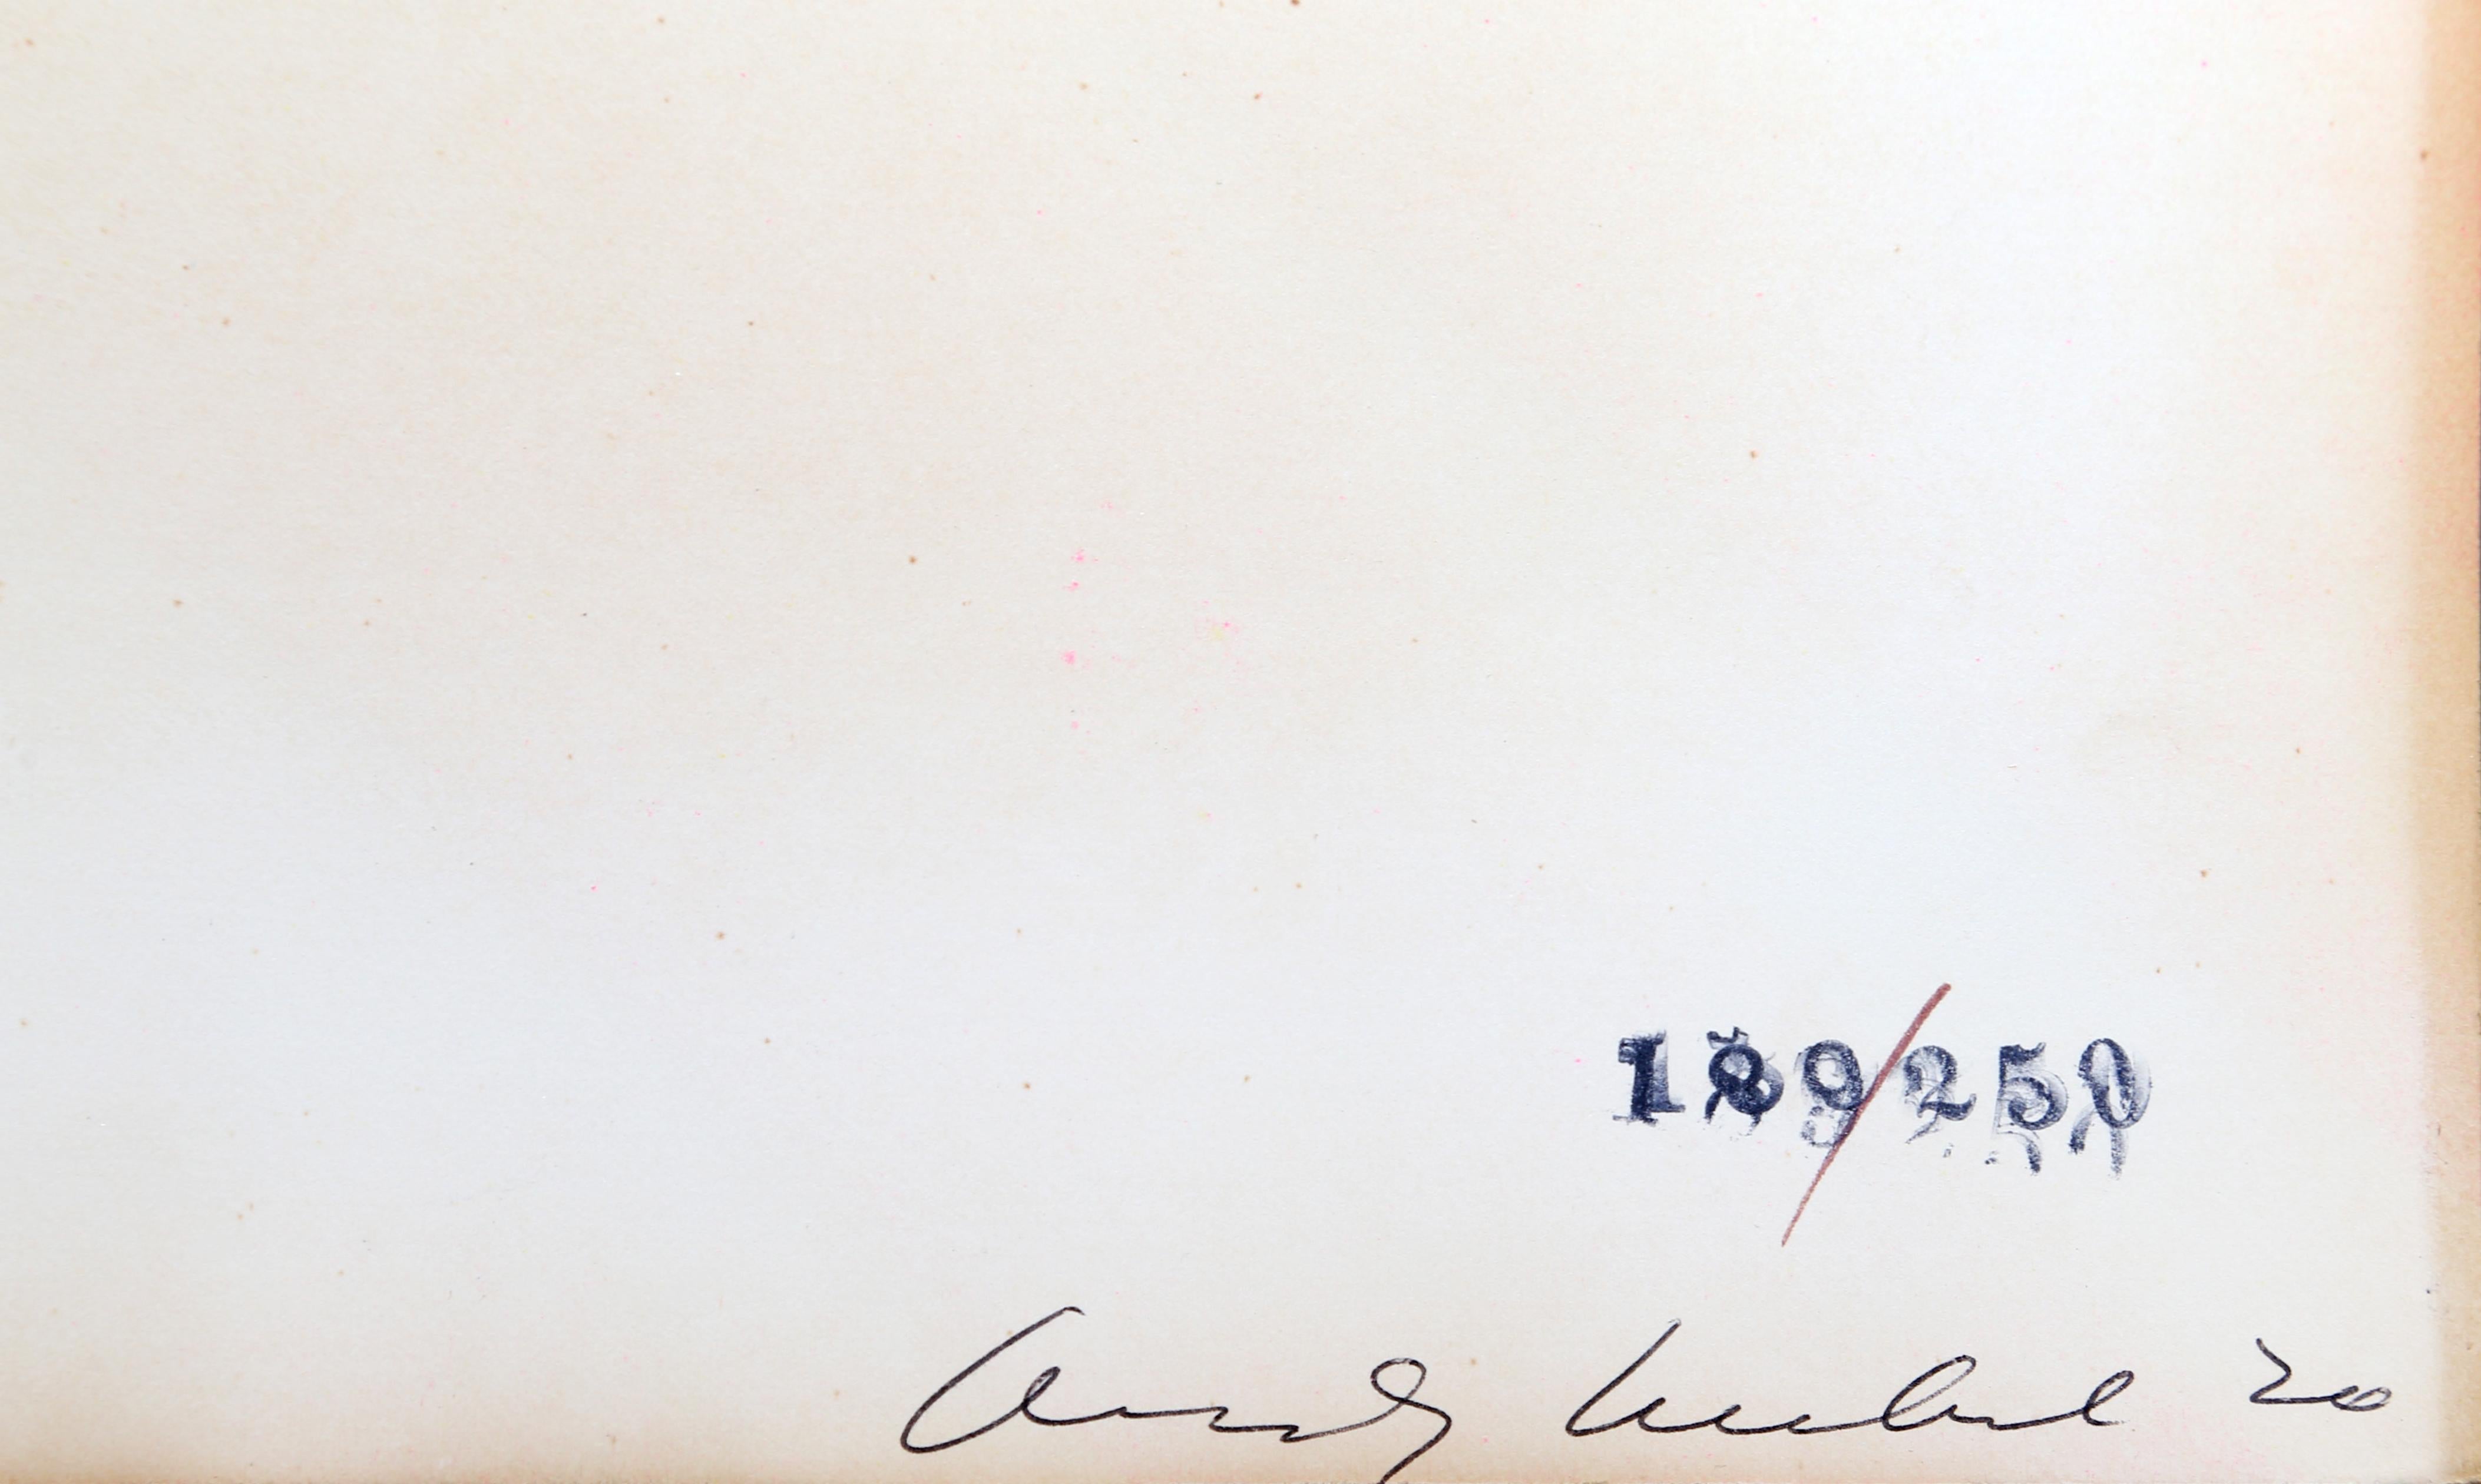 189/250
Andy Warhol 70